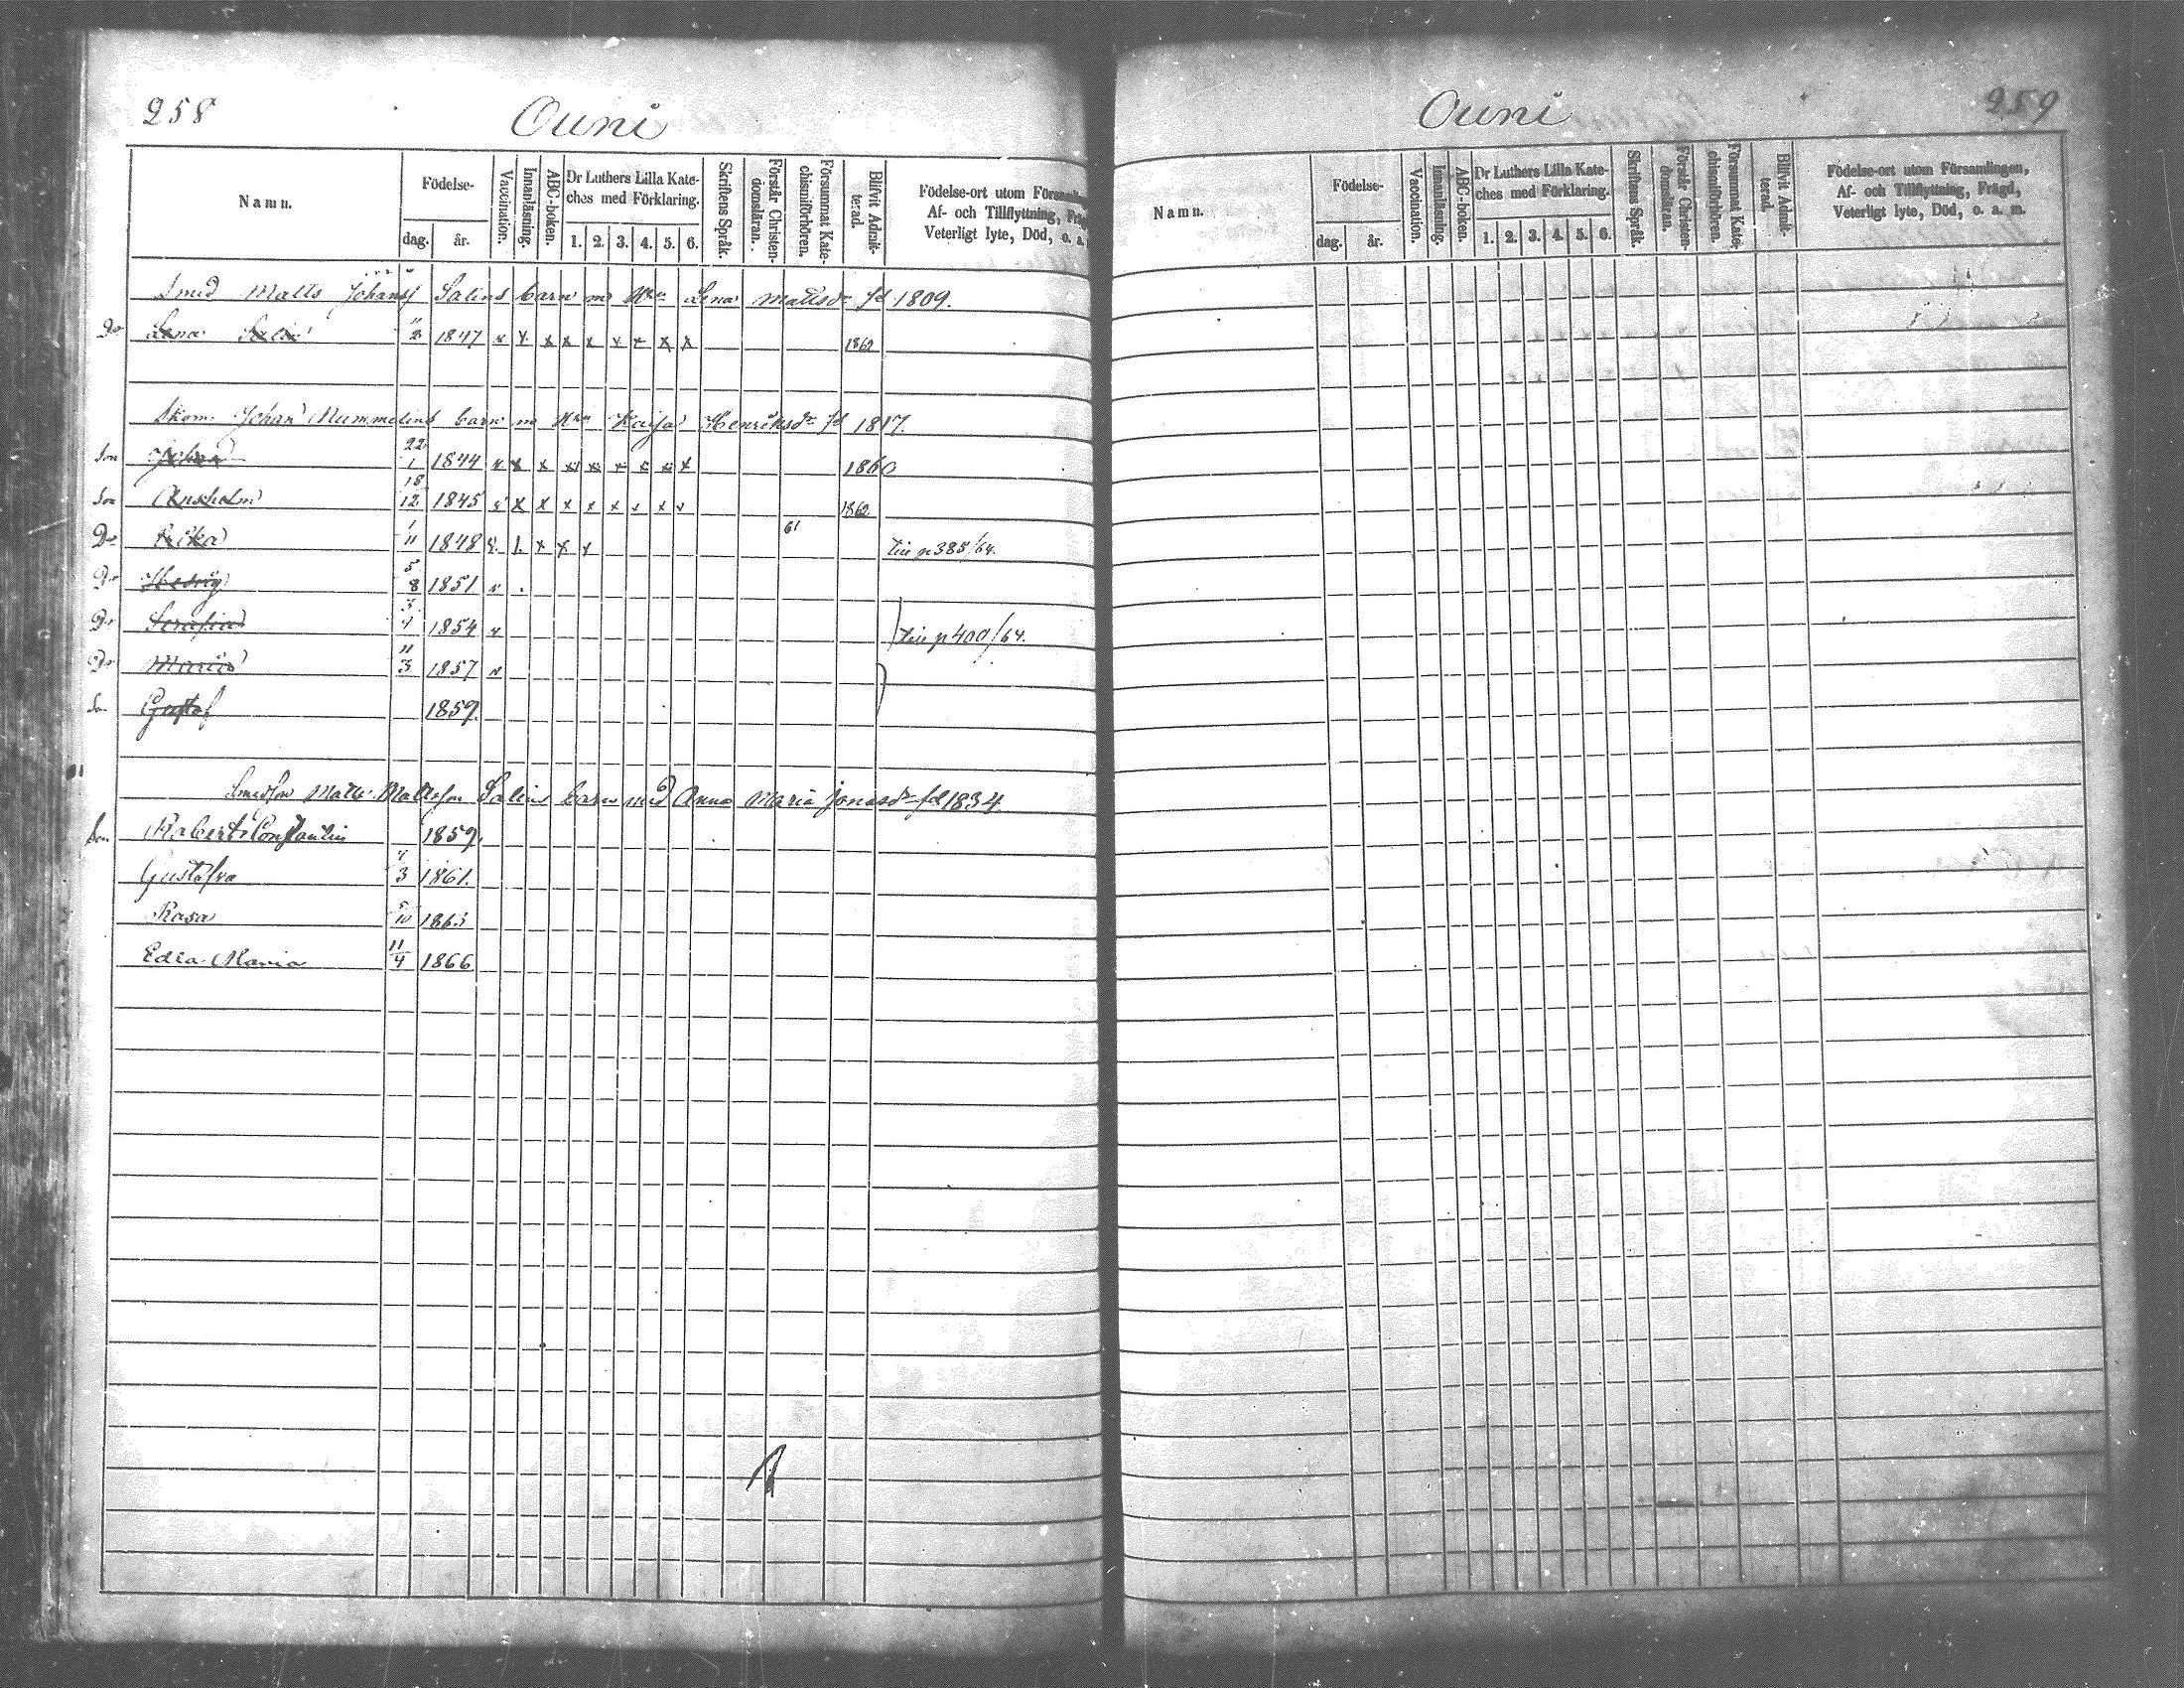 258 Ouni
Namn. Födelse- dag. år. Vaccination. Innanläsning. ABC-boken. Dr Luthers Lilla Kateches med Förklaring. 1. 2. 3. 4. 5. 6. Skriftens Språk. Förstår Christendomsläran. Försummat Katechismiförhören. Blifvit Admitterad. Födelse-ort utom Församl Af- och Tillflyttning, Fräg Veterligt lyte, Död, o. a.
Smed Matts Johanss Salins barn m Hu Lena Mattsdr fd 1809.
Dr Lena 2 1847 x x x x x x x x x 1862
Skom. Johan Nummelins barn m Hu Kaisa Henriksdr fd 1817.
Son Johan 22/1 1844 x x x x x x x x x 1860
Son Anshelm 18/12 1845 x x x x x x x x x 1862
Dr Rika 1/11 1848 x x x 61 p 385/64.
Dr Hedvig 5/8 1851
Dr Serafia 3/4 1854 p 400/64.
Dr Maria 11/3 1857
Son Gustaf 1859.
Smedson Matts Mattsson Salins barn med Anna Maria Jonasdr fd 1834.
Son Robert Constantin 1859.
Gustafva 4/3 1861.
Rosa 5/10 1863
Edla Maria 11/4 1866
Ouni 259
Namn. Födelse- dag. år. Vaccination. Innanläsning. ABC-boken. Dr Luthers Lilla Kateches med Förklaring. 1. 2. 3. 4. 5. 6. Skriftens Språk. Förstår Christendomsläran. Försummat Katechismiförhören. Blifvit Admitterad. Födelse-ort utom Församlingen, Af- och Tillflyttning, Frägd, Veterligt lyte, Död, o. a. m.